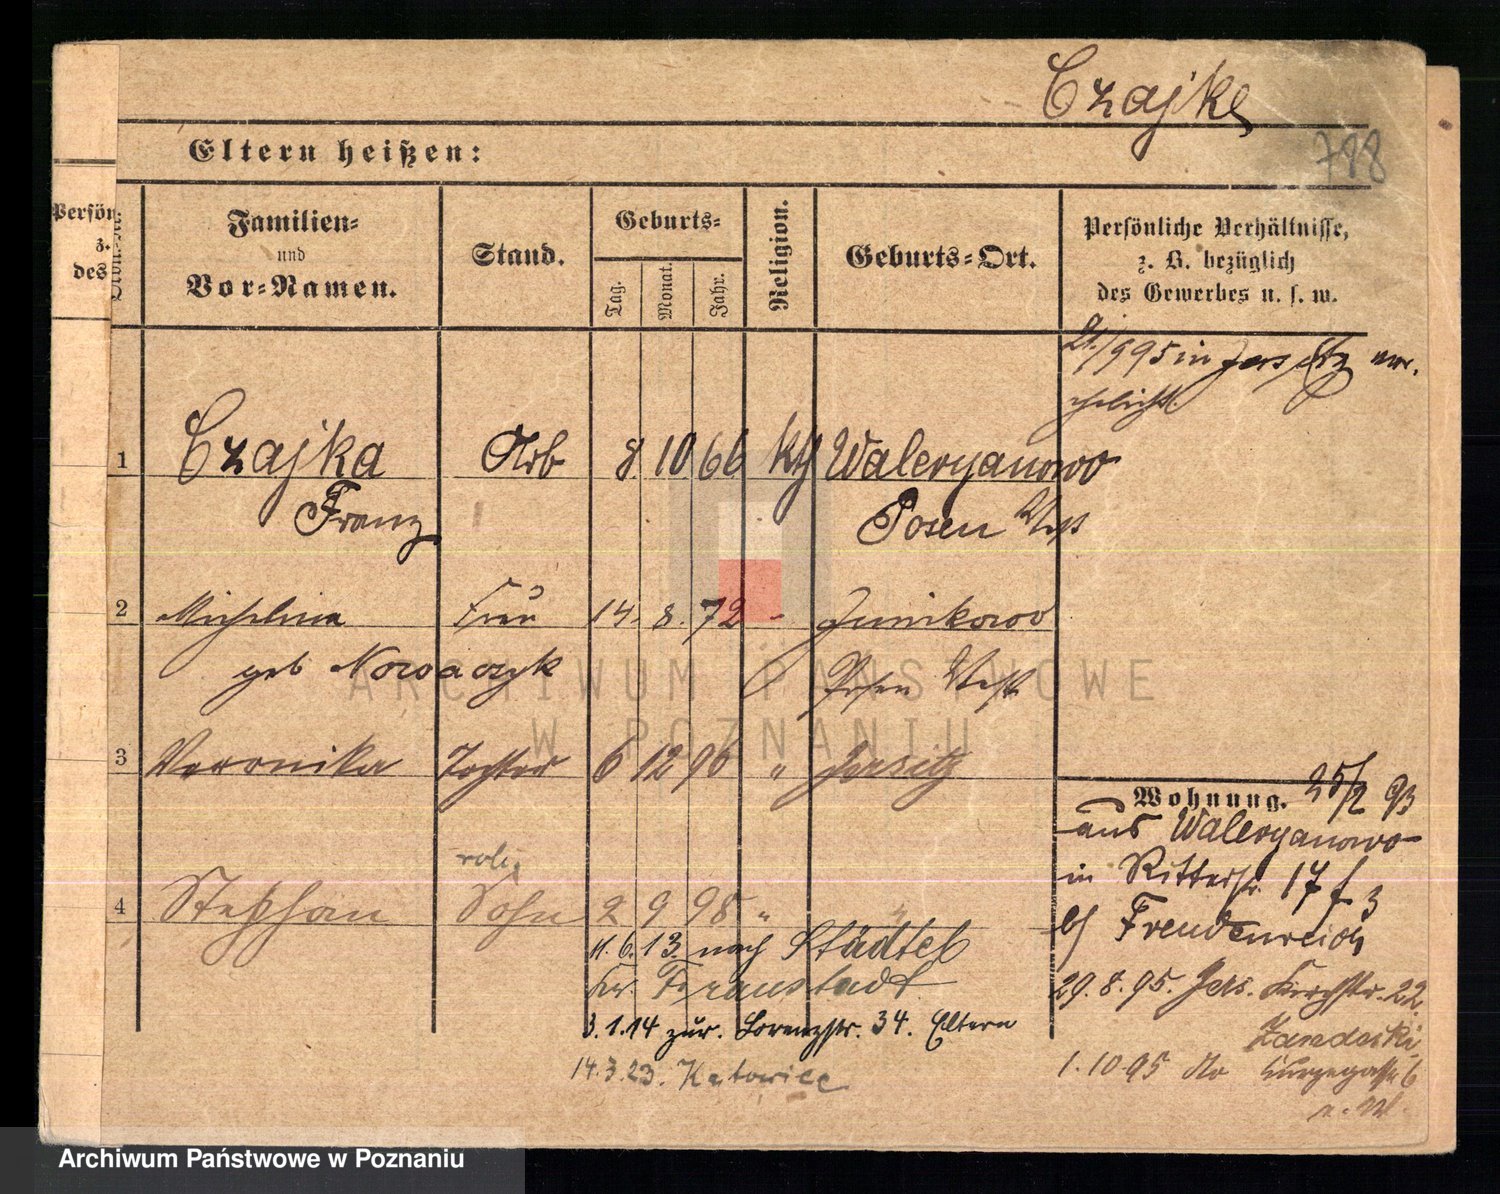 Czajka
788
Eltern heißen:
Persön
z.
des
Familien-
und
Vor-Namen.
Stand.
Geburts-
Tag.
Monat.
Jahr.
Religion.
Geburts-Ort.
Persönliche Verhältnisse,
z. B. bezüglich
des Gewerbes u. s. w.
21/9 95 in Jersitz ver-
ehelicht.
1 Czajka Arb 8. 10. 66 kth Waleryanowo
Franz Posen West
2 Michalina Frau 14. 8. 72 - Junikowo
geb Nowaczyk Posen West
3 Veronika Tochter 6 12 96 " Jersitz
4 Stephan Sohn 2 9 98 " "
11. 6. 13. nach Städtel
Kr. Fraustadt
3.1.14 zur. Lorenzstr. 34. Eltern
14.3.23. Katowice
Wohnung. 25/2 93
aus Waleryanowo
in Ritterstr 17 f 3
b/ Freudenreich
29.8.95. Jers. Kirchstr. 22.
1.10.95 No 6
ARCHIWUM PAŃSTWOWE
W POZNANIU
Archiwum Państwowe w Poznaniu